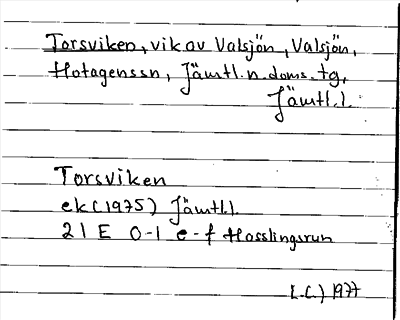 Torsviken, vik av Valsjön, Valsjön,
Hotagens sn, Jämtl. n. doms. tg,
Jämtl. l.
Torsviken
ek (1975) Jämtl. l.
21 E 0-1 e-f Hosslingsrun
L.C.) 1977